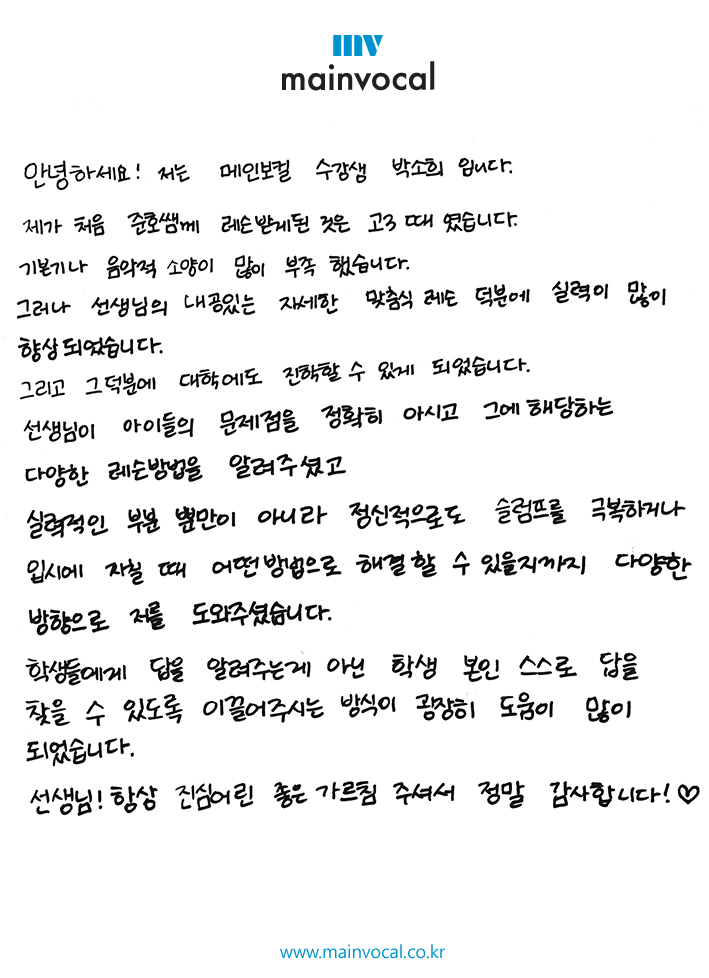 mv
mainvocal
안녕하세요! 저는 메인보컬 수강생 박소희 입니다.
제가 처음 준호쌤께 레슨받게된 것은 고3 때 였습니다.
기본기나 음악적 소양이 많이 부족 했습니다.
그러나 선생님의 내공있는 자세한 맞춤식 레슨 덕분에 실력이 많이
향상되었습니다.
그리고 그덕분에 대학에도 진학할 수 있게 되었습니다.
선생님이 아이들의 문제점을 정확히 아시고 그에 해당하는
다양한 레슨방법을 알려주셨고
실력적인 부분 뿐만이 아니라 정신적으로도 슬럼프를 극복하거나
입시에 지칠 때 어떤방법으로 해결할 수 있을지까지 다양한
방향으로 저를 도와주셨습니다.
학생들에게 답을 알려주는게 아닌 학생 본인 스스로 답을
찾을 수 있도록 이끌어주시는 방식이 굉장히 도움이 많이
되었습니다.
선생님! 항상 진심어린 좋은 가르침 주셔서 정말 감사합니다! ♡
www.mainvocal.co.kr